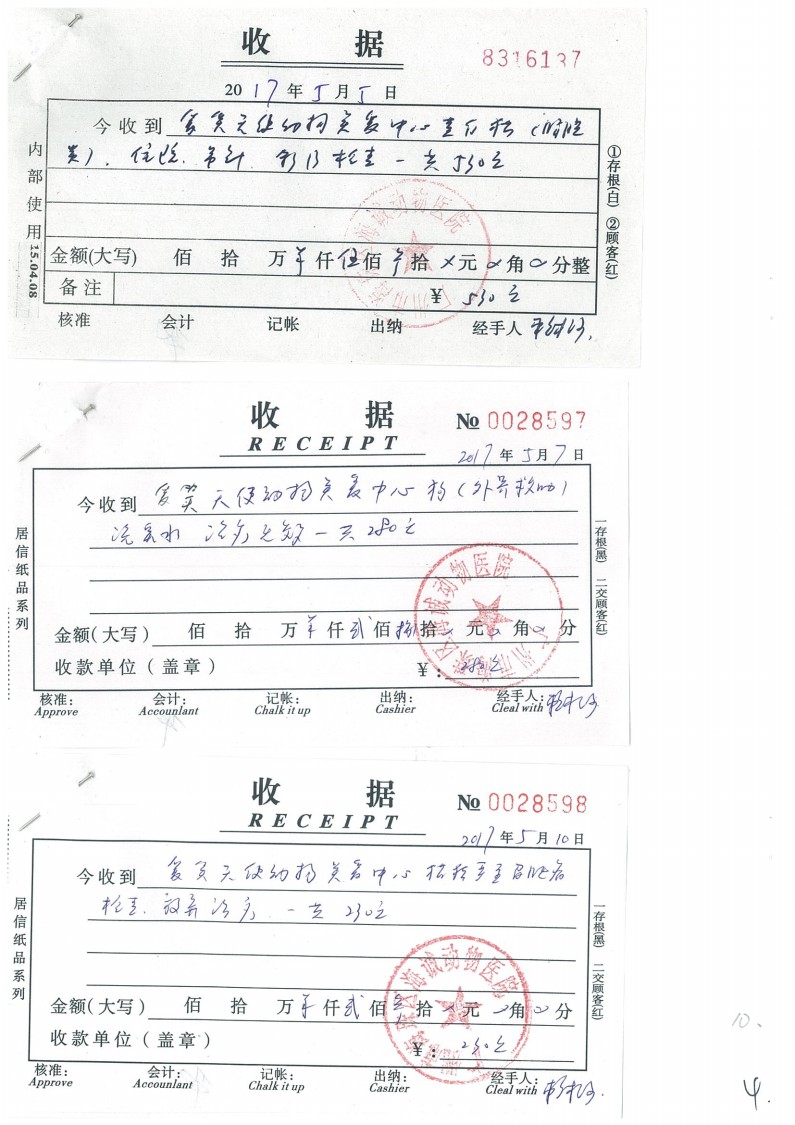 收 据
8316137
2017年5月5日
今收到 天使动物关爱中心
住院 检查 一共530元
内部使用
15.04.08
①存根(白) ②顾客(红)
海诚动物医院
金额(大写) 佰 拾 万 仟 伍佰 拾 元 角 分整
备注 ¥ 530元
核准 会计 记帐 出纳 经手人
收 据
RECEIPT
№ 0028597
2017年5月7日
今收到 天使动物关爱中心 狗(外界救助)
一共280元
居信纸品系列
一存根(黑) 二交顾客(红)
海诚动物医院
金额(大写) 佰 拾 万 仟 贰佰 捌拾 元 角 分
收款单位(盖章) ¥: 280元
核准: 会计: 记帐: 出纳: 经手人:
Approve Accounlant Chalk it up Cashier Cleal with
收 据
RECEIPT
№ 0028598
2017年5月10日
今收到 天使动物关爱中心
检查. 放弃治疗. 一共230元
居信纸品系列
一存根(黑) 二交顾客(红)
海诚动物医院
金额(大写) 佰 拾 万 仟 贰佰 叁拾 元 角 分
收款单位(盖章) ¥: 230元
核准: 会计: 记帐: 出纳: 经手人:
Approve Accounlant Chalk it up Cashier Cleal with
10.